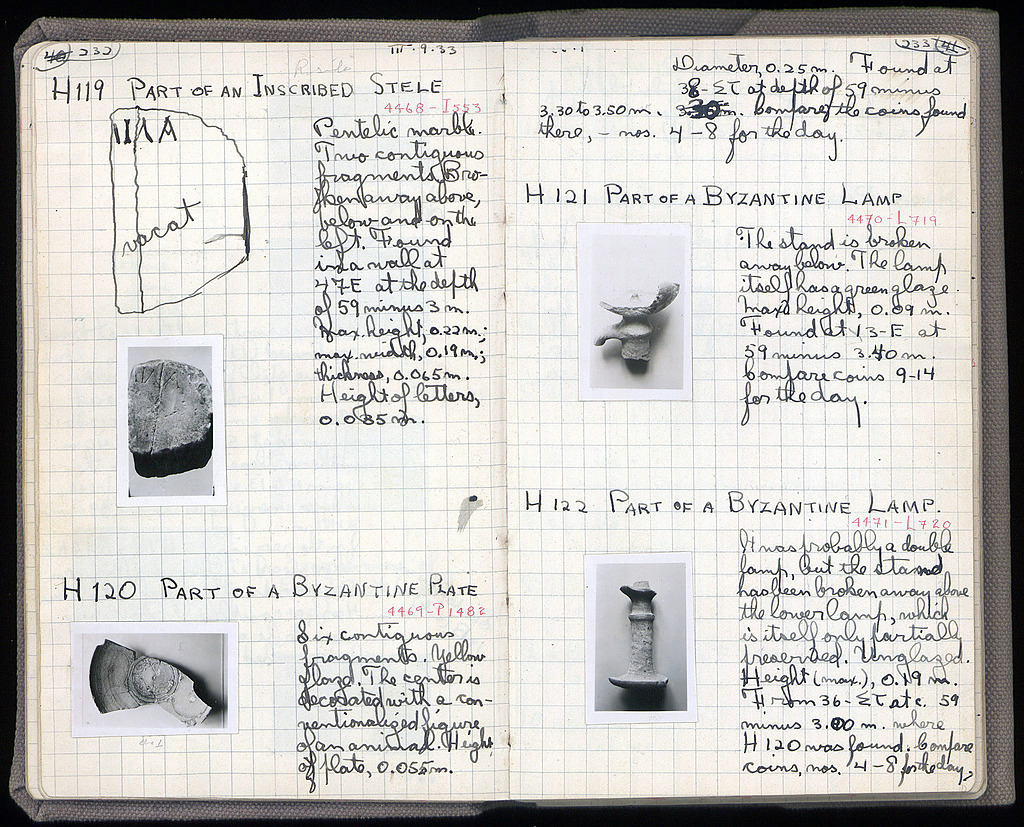 232
III-9-33
H119 PART OF AN INSCRIBED STELE
4468-I553
vacat
Pentelic marble.
Two contiguous
fragments. Bro-
ken away above,
below and on the
left. Found
in a wall at
47E at the depth
of 59 minus 3 m.
Max. height, 0.22 m.;
max. width, 0.19 m.;
thickness, 0.065 m.
Height of letters,
0.035 m.
H120 PART OF A BYZANTINE PLATE
4469-P1482
Six contiguous
fragments. Yellow
glaze. The center is
decorated with a con-
ventionalized figure
of an animal. Height
of plate, 0.055 m.
233
Diameter, 0.25 m. Found at
38-ΣΤ at depth of 59 minus
3.30 to 3.50 m. Compare the coins found
there, – nos. 4-8 for the day.
H121 PART OF A BYZANTINE LAMP
4470-L719
The stand is broken
away below. The lamp
itself has a green glaze.
Max. height, 0.09 m.
Found at 13-E at
59 minus 3.40 m.
Compare coins 9-14
for the day.
H122 PART OF A BYZANTINE LAMP.
4471-L720
It was probably a double
lamp, but the stand
has been broken away above
the lower lamp, which
is itself only partially
preserved. Unglazed.
Height (max.), 0.19 m.
From 36-ΣΤ at c. 59
minus 3.00 m. where
H120 was found. Compare
coins, nos. 4-8 for the day.